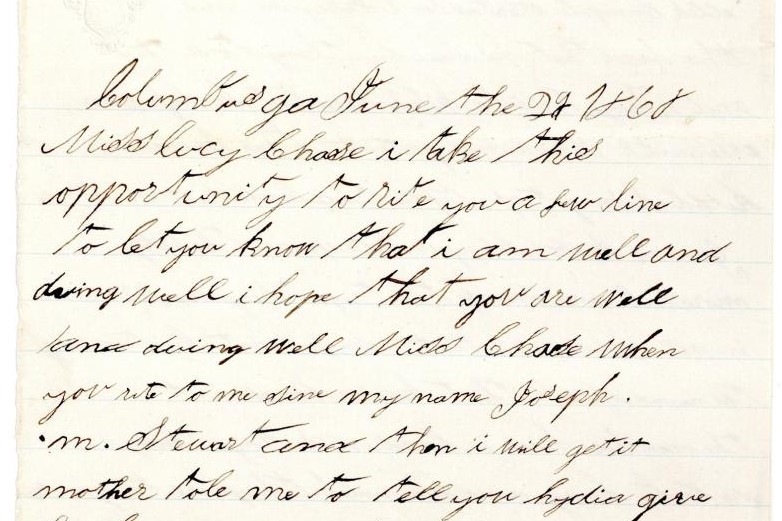 Columbus ga June the 29 1868
Miss lucy Chase i take this
opportunity to rite you a few line
to let you know that i am well and
duing well i hope that you are well
and duing well Miss Chase when
you rite to me sine my name Joseph.
.m. Stewart and then i will get it
mother tole me to tell you lydia give